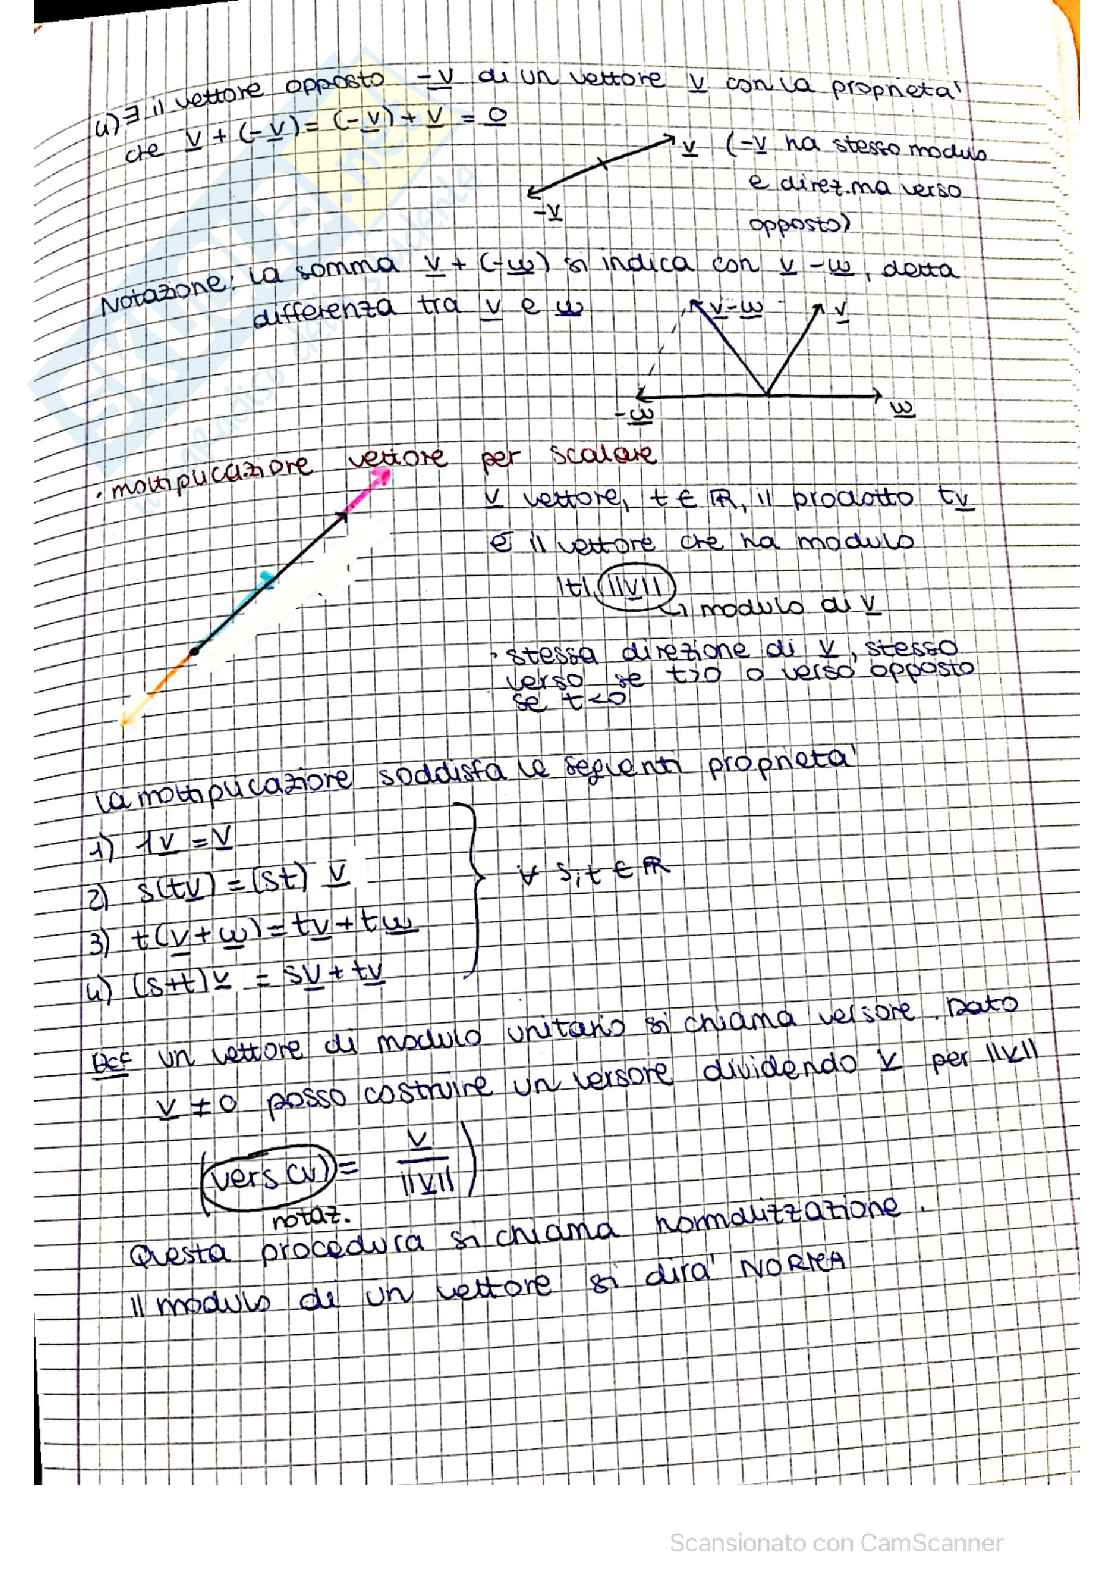 4) ∃ il vettore opposto -v di un vettore v con la proprietà
che v + (-v) = (-v) + v = 0
v (-v ha stesso modulo
e direz. ma verso
-v
opposto)
Notazione: la somma v + (-w) si indica con v - w, detta
differenza tra v e w
v-w
v
-w
w
· moltiplicazione vettore per scalare
v vettore, t ∈ ℝ, il prodotto tv
è il vettore che ha modulo
|t| ||v||
↳ modulo di v
· stessa direzione di v, stesso
verso se t>0 o verso opposto
se t<0
La moltiplicazione soddisfa le seguenti proprietà
1) 1v = v
2) s(tv) = (st) v
∀ s,t ∈ ℝ
3) t(v+w) = tv + tw
4) (s+t)v = sv + tv
Def un vettore di modulo unitario si chiama versore. Dato
v ≠ 0 posso costruire un versore dividendo v per ||v||
(vers(v) = v / ||v||)
notaz.
Questa procedura si chiama normalizzazione.
Il modulo di un vettore si dirà NORMA
Scansionato con CamScanner